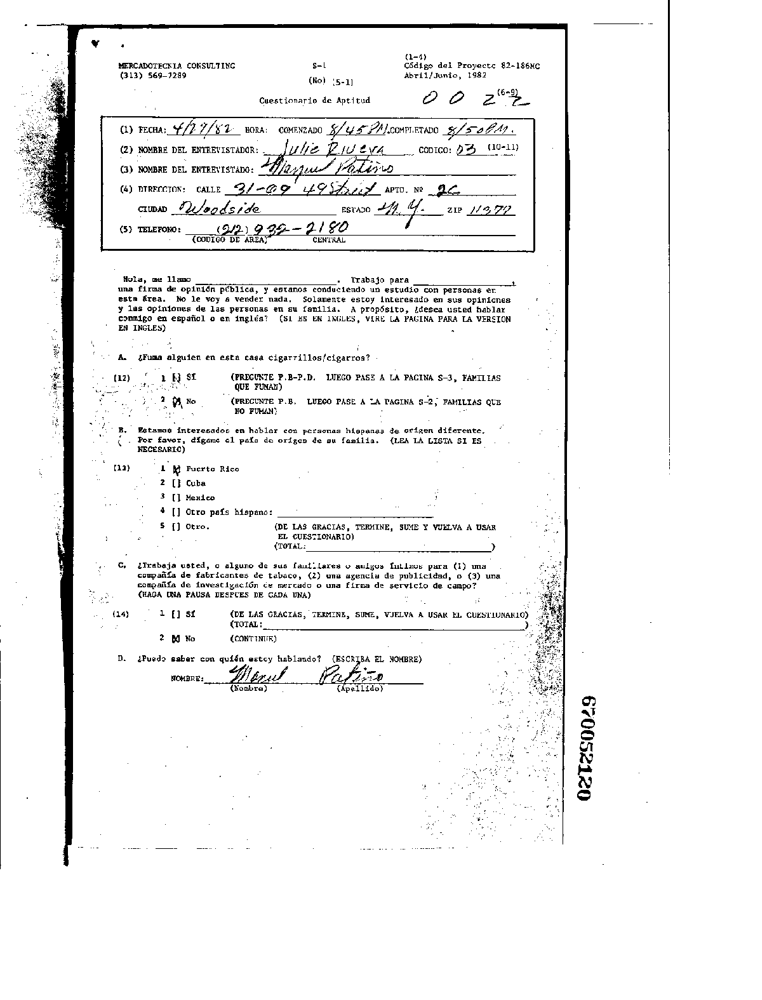 (1-4)
MERCADOTECNIA CONSULTING S-1 Código del Proyecto 82-186MC
(313) 569-7289 (No) (5-1) Abril/Junio, 1982
Cuestionario de Aptitud 0 0 2 2 (6-9)
(1) FECHA: 4/27/82 HORA: COMENZADO 8/45 PM. COMPLETADO 8/50 PM.
(2) NOMBRE DEL ENTREVISTADOR: Julie CODIGO: 03 (10-11)
(3) NOMBRE DEL ENTREVISTADO: Manuel Patino
(4) DIRECCION: CALLE 31-09 49 Street APTO. Nº 2C
CIUDAD Woodside ESTADO N.Y. ZIP 11377
(5) TELEFONO: (212) 932-2180
(CODIGO DE AREA) CENTRAL
Hola, me llamo . Trabajo para ,
una firma de opinión pública, y estamos conduciendo un estudio con personas en
esta área. No le voy a vender nada. Solamente estoy interesado en sus opiniones
y las opiniones de las personas en su familia. A propósito, ¿desea usted hablar
conmigo en español o en inglés? (SI ES EN INGLES, VIRE LA PAGINA PARA LA VERSION
EN INGLES)
A. ¿Fuma alguien en esta casa cigarrillos/cigarros?
(12) 1 [] Sí (PREGUNTE P.B-P.D. LUEGO PASE A LA PAGINA S-3, FAMILIAS
QUE FUMAN)
2 [X] No (PREGUNTE P.B. LUEGO PASE A LA PAGINA S-2, FAMILIAS QUE
NO FUMAN)
B. Estamos interesados en hablar con personas hispanas de origen diferente.
Por favor, dígame el país de origen de su familia. (LEA LA LISTA SI ES
NECESARIO)
(13) 1 [X] Puerto Rico
2 [] Cuba
3 [] Mexico
4 [] Otro país hispano:
5 [] Otro. (DE LAS GRACIAS, TERMINE, SUME Y VUELVA A USAR
EL CUESTIONARIO)
(TOTAL: )
C. ¿Trabaja usted, o alguno de sus familiares o amigos íntimos para (1) una
compañía de fabricantes de tabaco, (2) una agencia de publicidad, o (3) una
compañía de investigación de mercado o una firma de servicio de campo?
(HAGA UNA PAUSA DESPUES DE CADA UNA)
(14) 1 [] Sí (DE LAS GRACIAS, TERMINE, SUME, VUELVA A USAR EL CUESTIONARIO)
(TOTAL: )
2 [X] No (CONTINUE)
D. ¿Puedo saber con quién estoy hablando? (ESCRIBA EL NOMBRE)
NOMBRE: Manuel Patino
(Nombre) (Apellido)
670052120